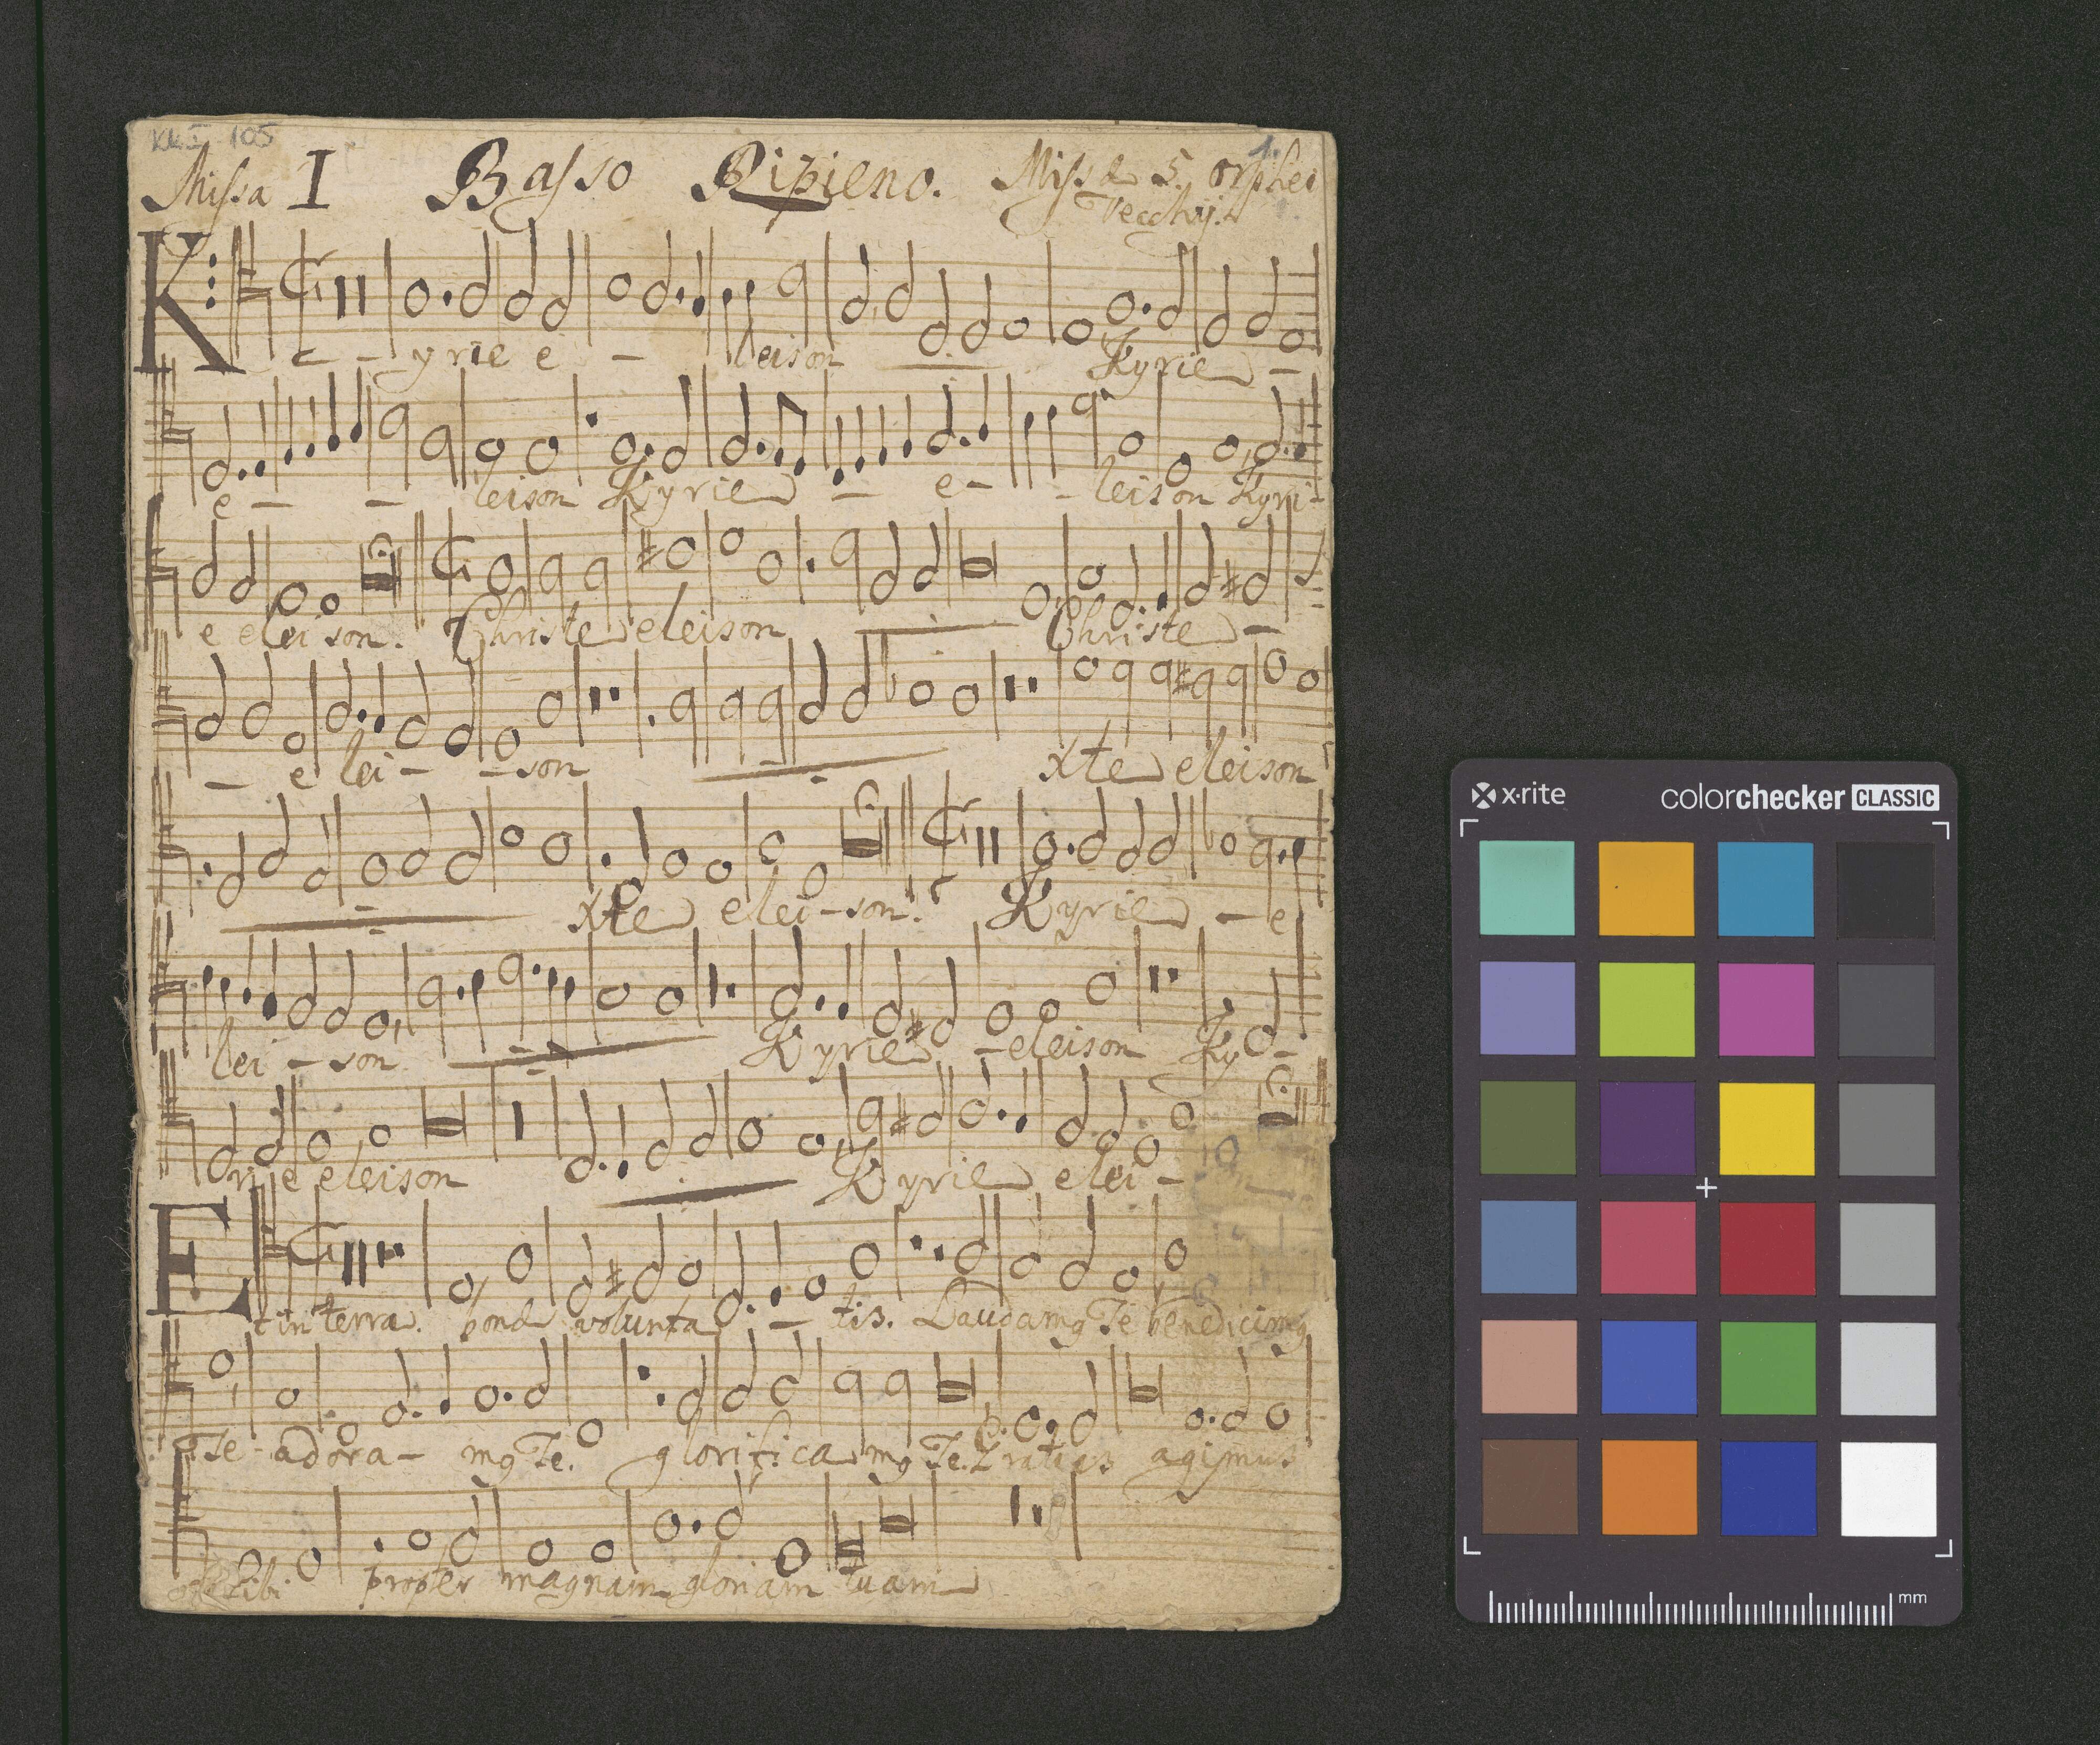 KkI 105
1.
Missa I Basso Ripieno. Missa 5. orphei
Vecchij.
K - - yrie e - leison Kyrie -
e - - leison Kyrie - e - - leison Kyri-
e elei son. Christe eleison Christe -
- e lei - - son xte eleison
xte elei - son. Kyrie - e
lei - son Kyrie - eleison Ky -
rie eleison Kyrie elei -
Et in terra. bonæ volunta - tis. Laudamg Te benedicimg
Te adora - mg Te. glorificamg Te. Gratias agimus
tibi propter magnam gloriam tuam
x·rite colorchecker CLASSIC
mm